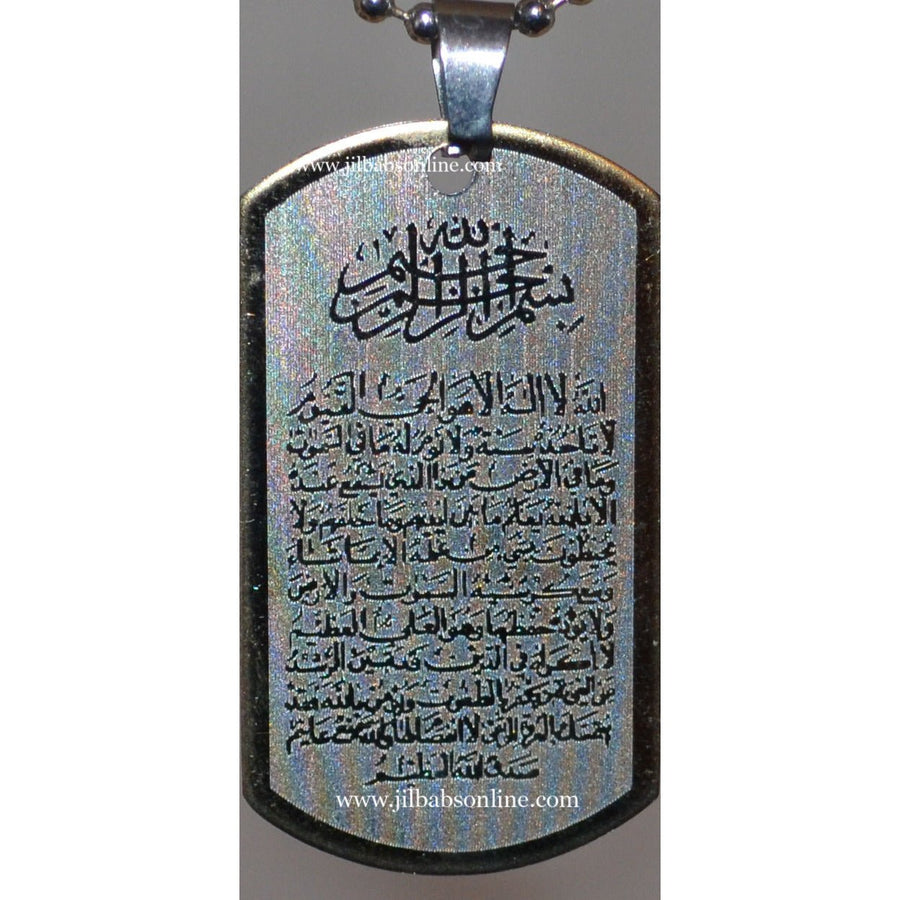 www.jilbabsonline.com
بسم الله الرحمن الرحيم
الله لا اله الا هو الحي القيوم
لا تاخذه سنة ولا نوم له ما في السموت
وما في الارض من ذا الذي يشفع عنده
الا باذنه يعلم ما بين ايديهم وما خلفهم ولا
يحيطون بشيء من علمه الا بما شاء
وسع كرسيه السموت والارض
ولا يوده حفظهما وهو العلي العظيم
لا اكراه في الدين قد تبين الرشد
من الغي فمن يكفر بالطغوت ويومن بالله فقد
استمسك بالعروة الوثقى لا انفصام لها والله سميع عليم
صدق الله العظيم
www.jilbabsonline.com